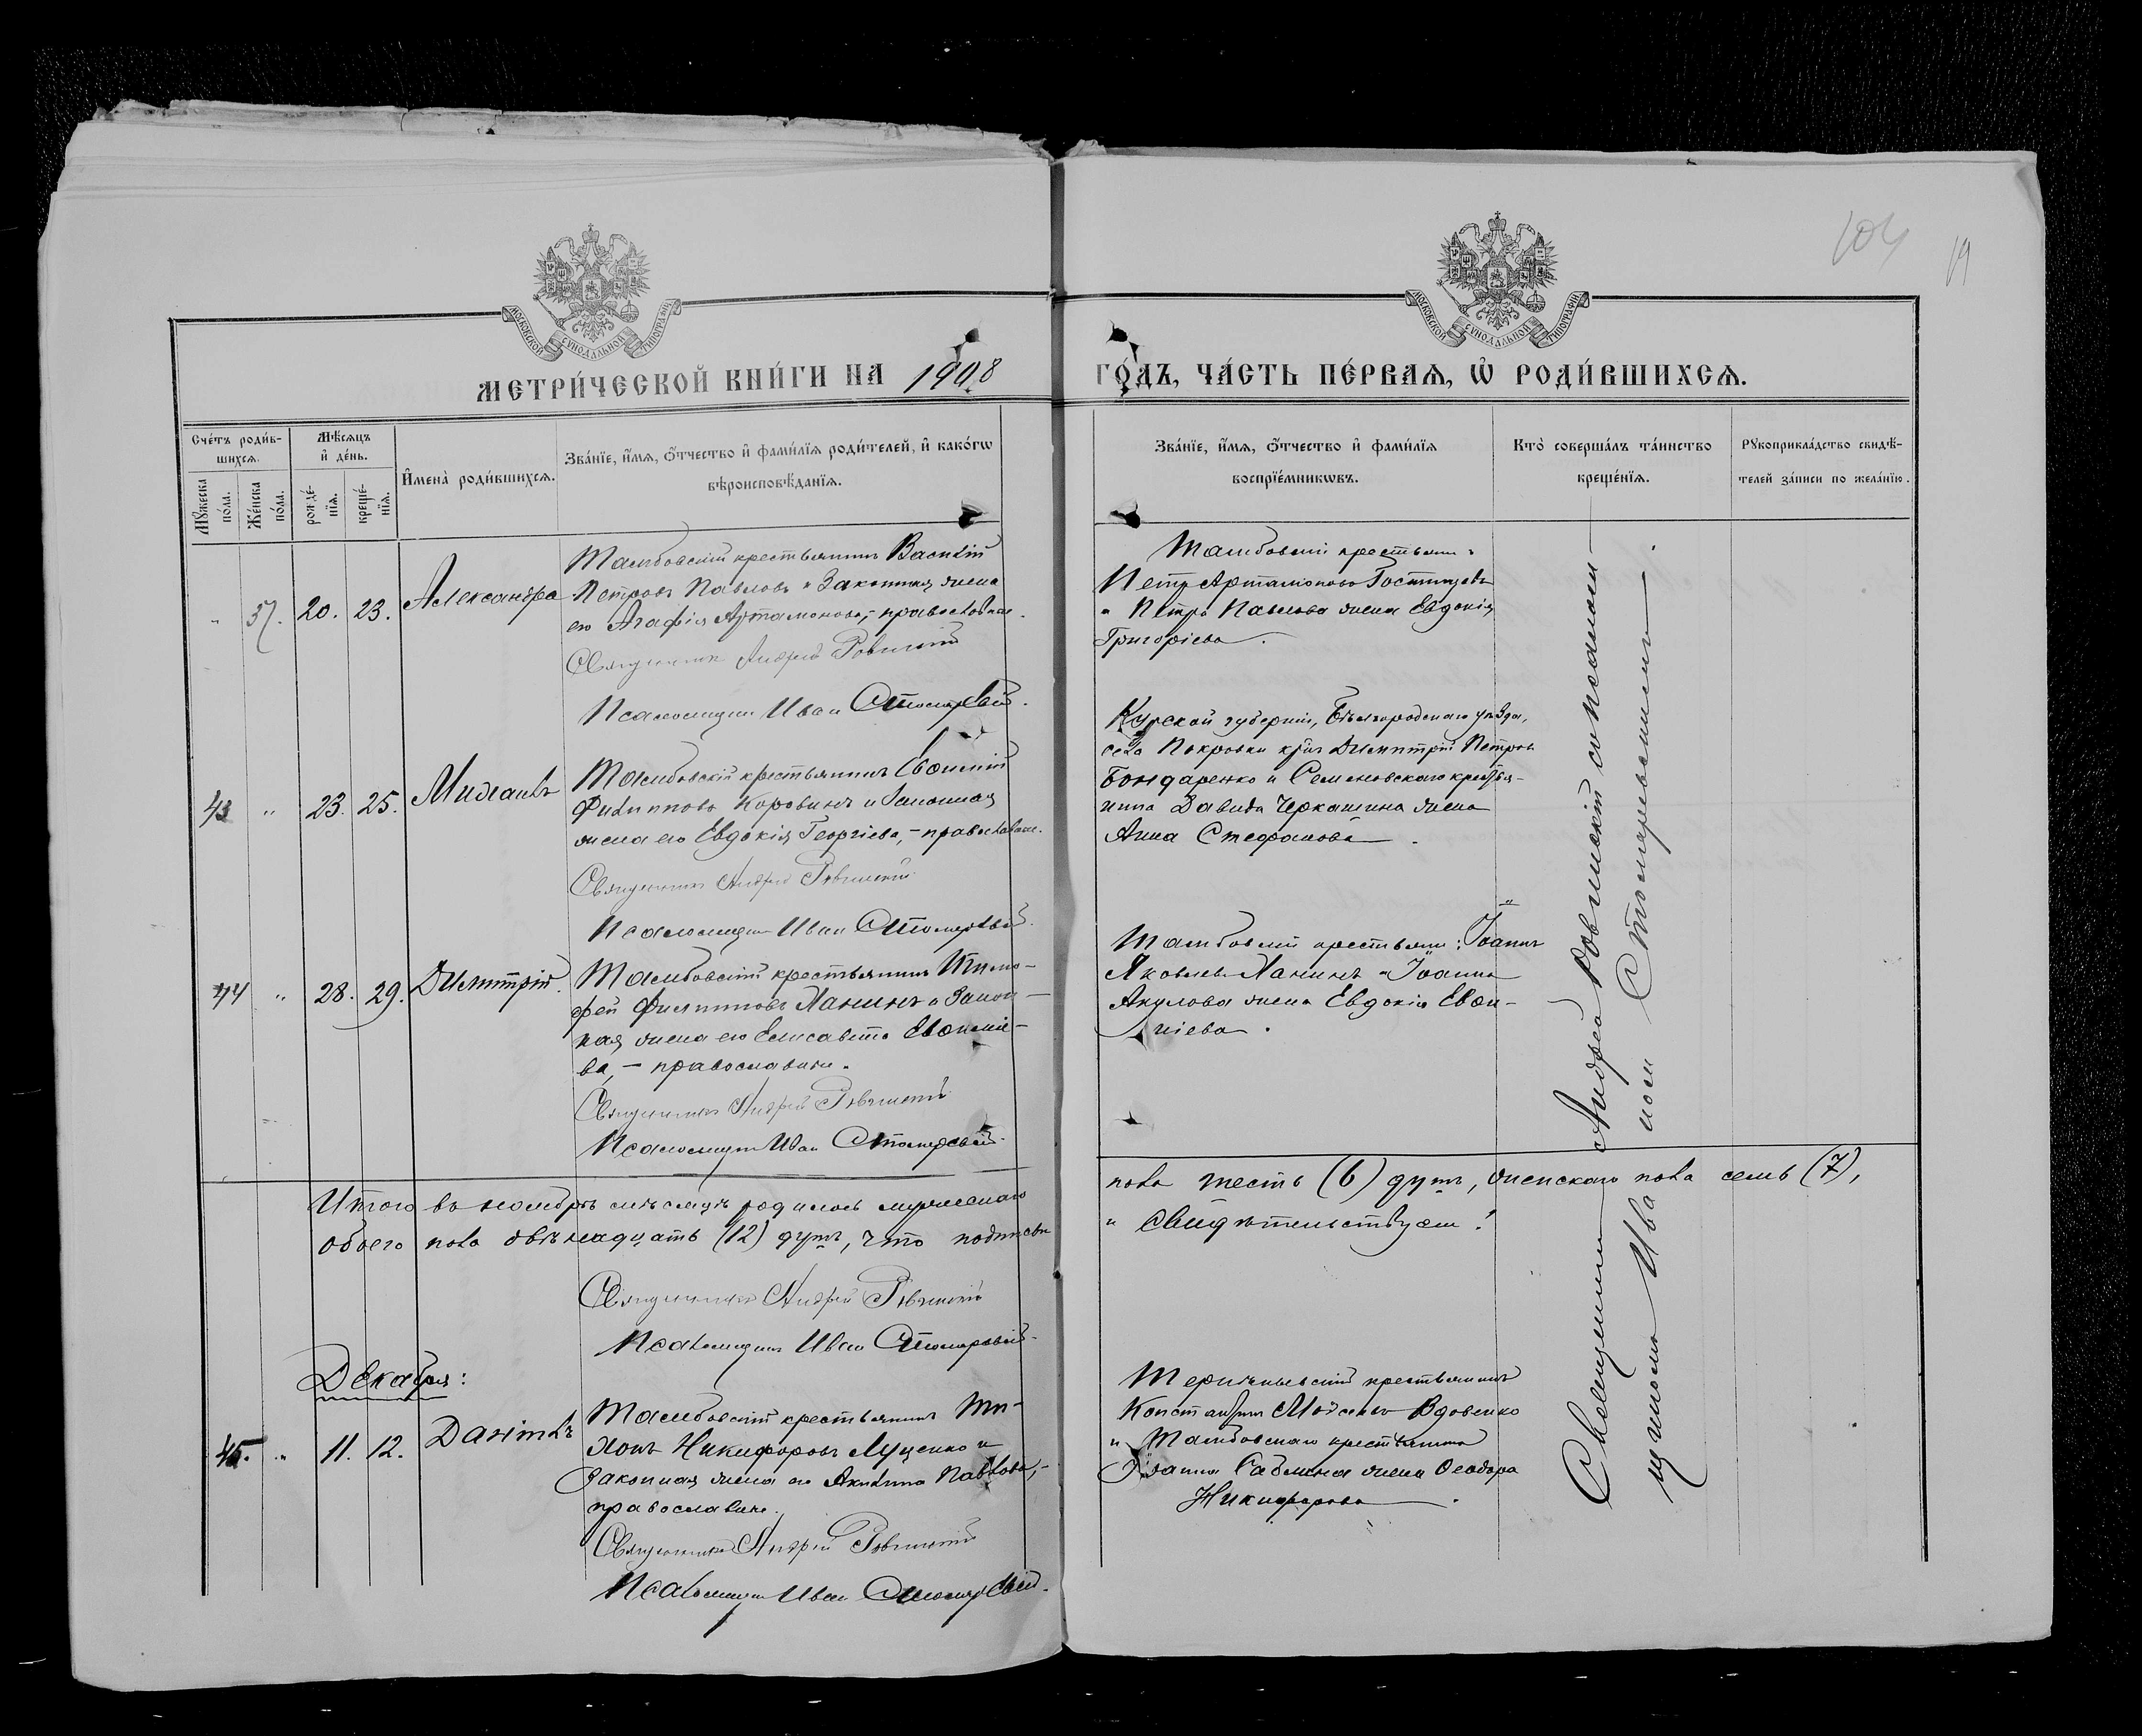 104
19
МОСКОВСКОЙ СѴНОДАЛЬНОЙ ТИПОГРАФІИ
МОСКОВСКОЙ СѴНОДАЛЬНОЙ ТИПОГРАФІИ
МЕТРИ́ЧЕСКОЙ КНИ́ГИ НА 1908 ГО́ДЪ, ЧА́СТЬ ПЕ́РВАЯ, Ѽ РОДИ́ВШИХСЯ.
Сче́тъ роди́в-
шихся.
Мѣ́сяцъ
и҆ де́нь.
Мꙋ́жеска по́ла.
Же́нска по́ла.
рожде́-
нїя.
креще́-
нїя.
И҆мена̀ роди́вшихся.
Зва́нїе, и҆́мя, ѻ҆́тчество и҆ фами́лїя роди́телей, и҆ како́гѡ
вѣроисповѣ́данїя.
Зва́нїе, и҆́мя, ѻ҆́тчество и҆ фами́лїя
воспрїе́мникѡвъ.
Кто̀ соверша́лъ та́инство
креще́нїя.
Рꙋкоприкла́дство свидѣ́-
телей за́писи по жела́нїю.
" 37. 20. 23. Александра
Тамбовскій крестьянинъ Василій
Петровъ Павловъ и Законная жена
его Агафія Артамонова, - православные.
Священникъ Андрей
Псаломщик Иван
Тамбовскій крестьянинъ
Петр Артамонов
и Петра Павлова жена Евдокія
Григоріева.
43 " 23. 25. Михаилъ
Тамбовскій крестьянинъ Евѳимій
Филипповъ Коровинъ и Законная
жена его Евдокія Георгіева, - православные.
Священникъ Андрей
Псаломщик Иван
Курской губерніи, Бѣлгородскаго уѣзда,
села Покровки кр-нъ Димитрій Петров
Бондаренко и Семеновскаго крестья-
нина Давида Черкашина жена
Анна Стефанова.
44 " 28. 29. Димитрій.
Тамбовскій крестьянинъ Тимо-
фей Филипповъ Ханинъ и Закон-
ная жена его Елисавета Евѳиміе-
ва, - православные.
Священникъ Андрей
Псаломщик Иван
Тамбовскій крестьянин: Іоаннъ
Яковлевъ Ханинъ и Іоанна
Акулова жена Евдокія Евѳи-
міева.
Итого въ ноябрѣ мѣсяцѣ родилось мужескаго пола шесть (6) душъ, женскаго пола семь (7),
обоего пола двѣнадцать (12) душъ, что подписью и свидѣтельствуем:
Священникъ Андрей
Псаломщикъ Иван
Декабря:
45. " 11. 12. Даніилъ
Тамбовскій крестьянинъ Ти-
хонъ Никифоровъ Луценко и
Законная жена его Акилина Павлова, -
православные.
Священникъ Андрей
Псаломщик Иван
крестьянинъ
Константинъ Моѵсеевъ Вдовенко
и Тамбовскаго крестьянина
Іоанна жена Ѳеодора
Никифорова.
Священникъ Андрей Ровинскій со псалом-
щикомъ Ива ном